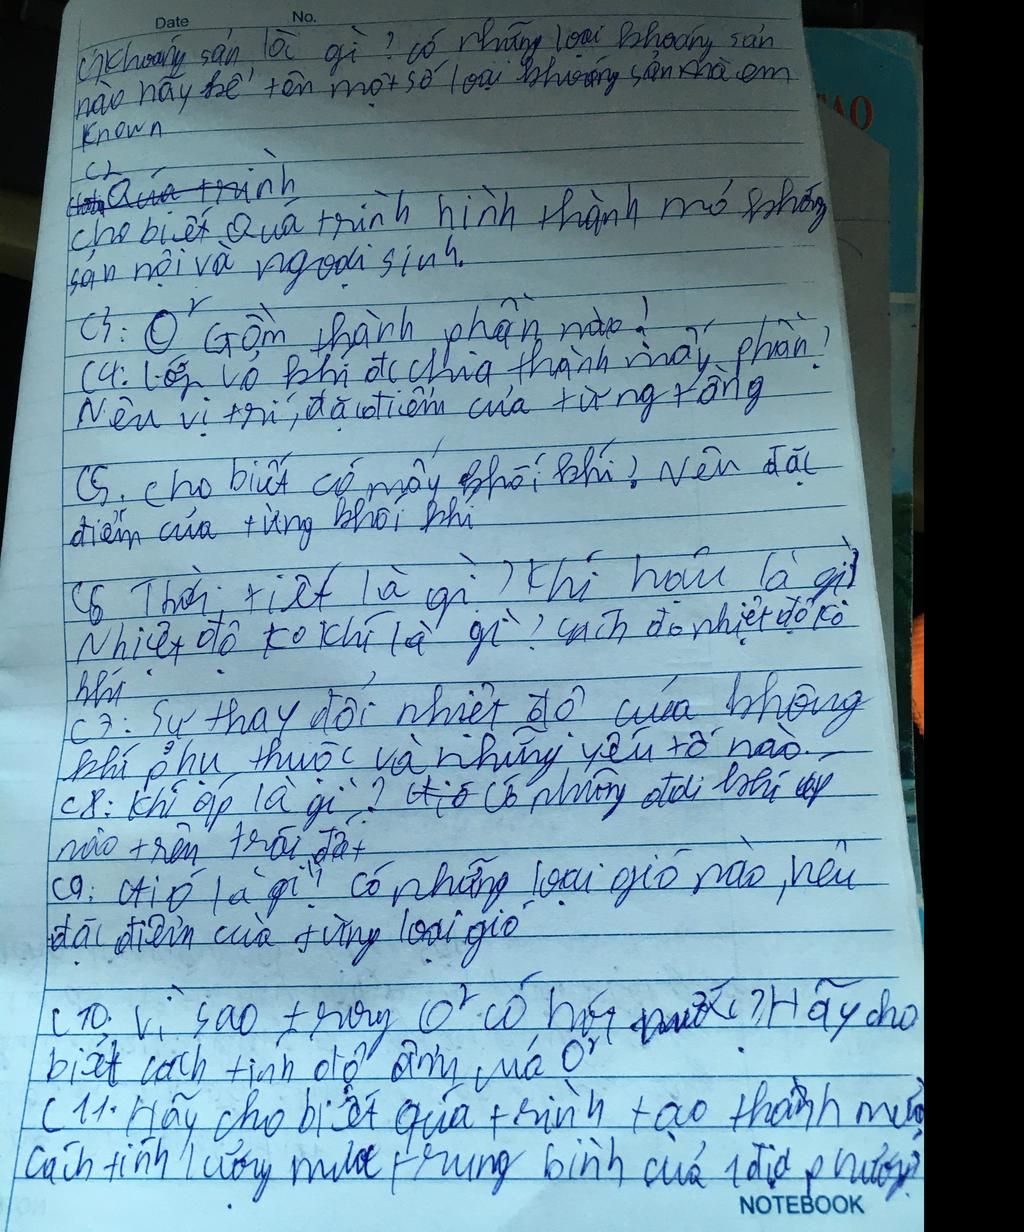 Date No.
C1 Khoáng sản là gì? có những loại khoáng sản
nào hãy kể tên một số loại khoáng sản mà em
known
C2
Quá trình
cho biết Quá trình hình thành mỏ khoáng
sản nội và ngoại sinh.
C3: O² Gồm thành phần nào?
C4: Lớp vỏ khí đc chia thành mấy phần?
Nêu vị trí, đặc điểm của từng tầng
C5. cho biết có mấy khối khí? Nêu đặc
điểm của từng khối khí
C6 Thời tiết là gì? Khí hậu là gì?
Nhiệt độ ko khí là gì? cách đo nhiệt độ ko
khí
C7: Sự thay đổi nhiệt độ của không
khí phụ thuộc và những yếu tố nào.
C8: Khí áp là gì? Có những đai khí áp
nào trên trái đất
C9: Gió là gì? Có những loại gió nào, nêu
đặc điểm của từng loại gió
C10. Vì sao trong O² có hơi nước? Hãy cho
biết cách tính độ ẩm của O²
C11. Hãy cho biết quá trình tạo thành mưa
Cách tính lượng mưa trung bình của 1 địa phương?
NOTEBOOK
TẠO